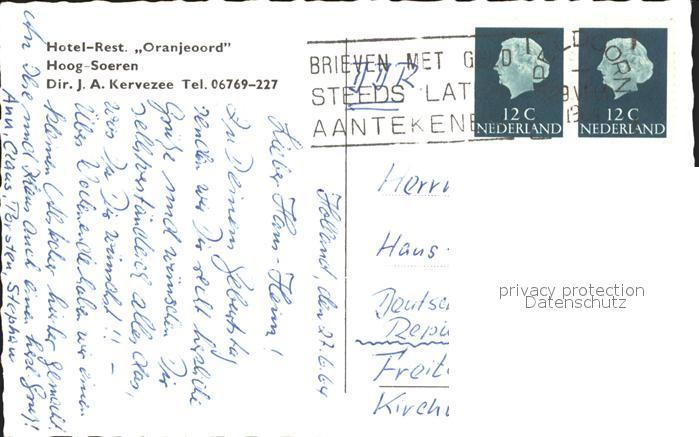 Hotel-Rest. „Oranjeoord”
Hoog-Soeren
Dir. J. A. Kervezee Tel. 06769-227
BRIEVEN MET G
STEEDS LAT
AANTEKENE
DDR
12 C
NEDERLAND
12 C
NEDERLAND
Holland, den 27.6.64
Lieber Hans-Heini!
Zu Deinem Geburtstag
senden wir Dir recht herzliche
Grüße und wünschen Dir
selbstverständlich alles das,
was Du Dir wünschst!! –
Über Wochenende haben wir einen
kleinen hierher gemacht.
An Ihre auch einen Gruß!
Ann, Claus, Torsten, Stephan
Herrn
Hans-
Deutsc
Repu
Freit
Kirch
privacy protection
Datenschutz